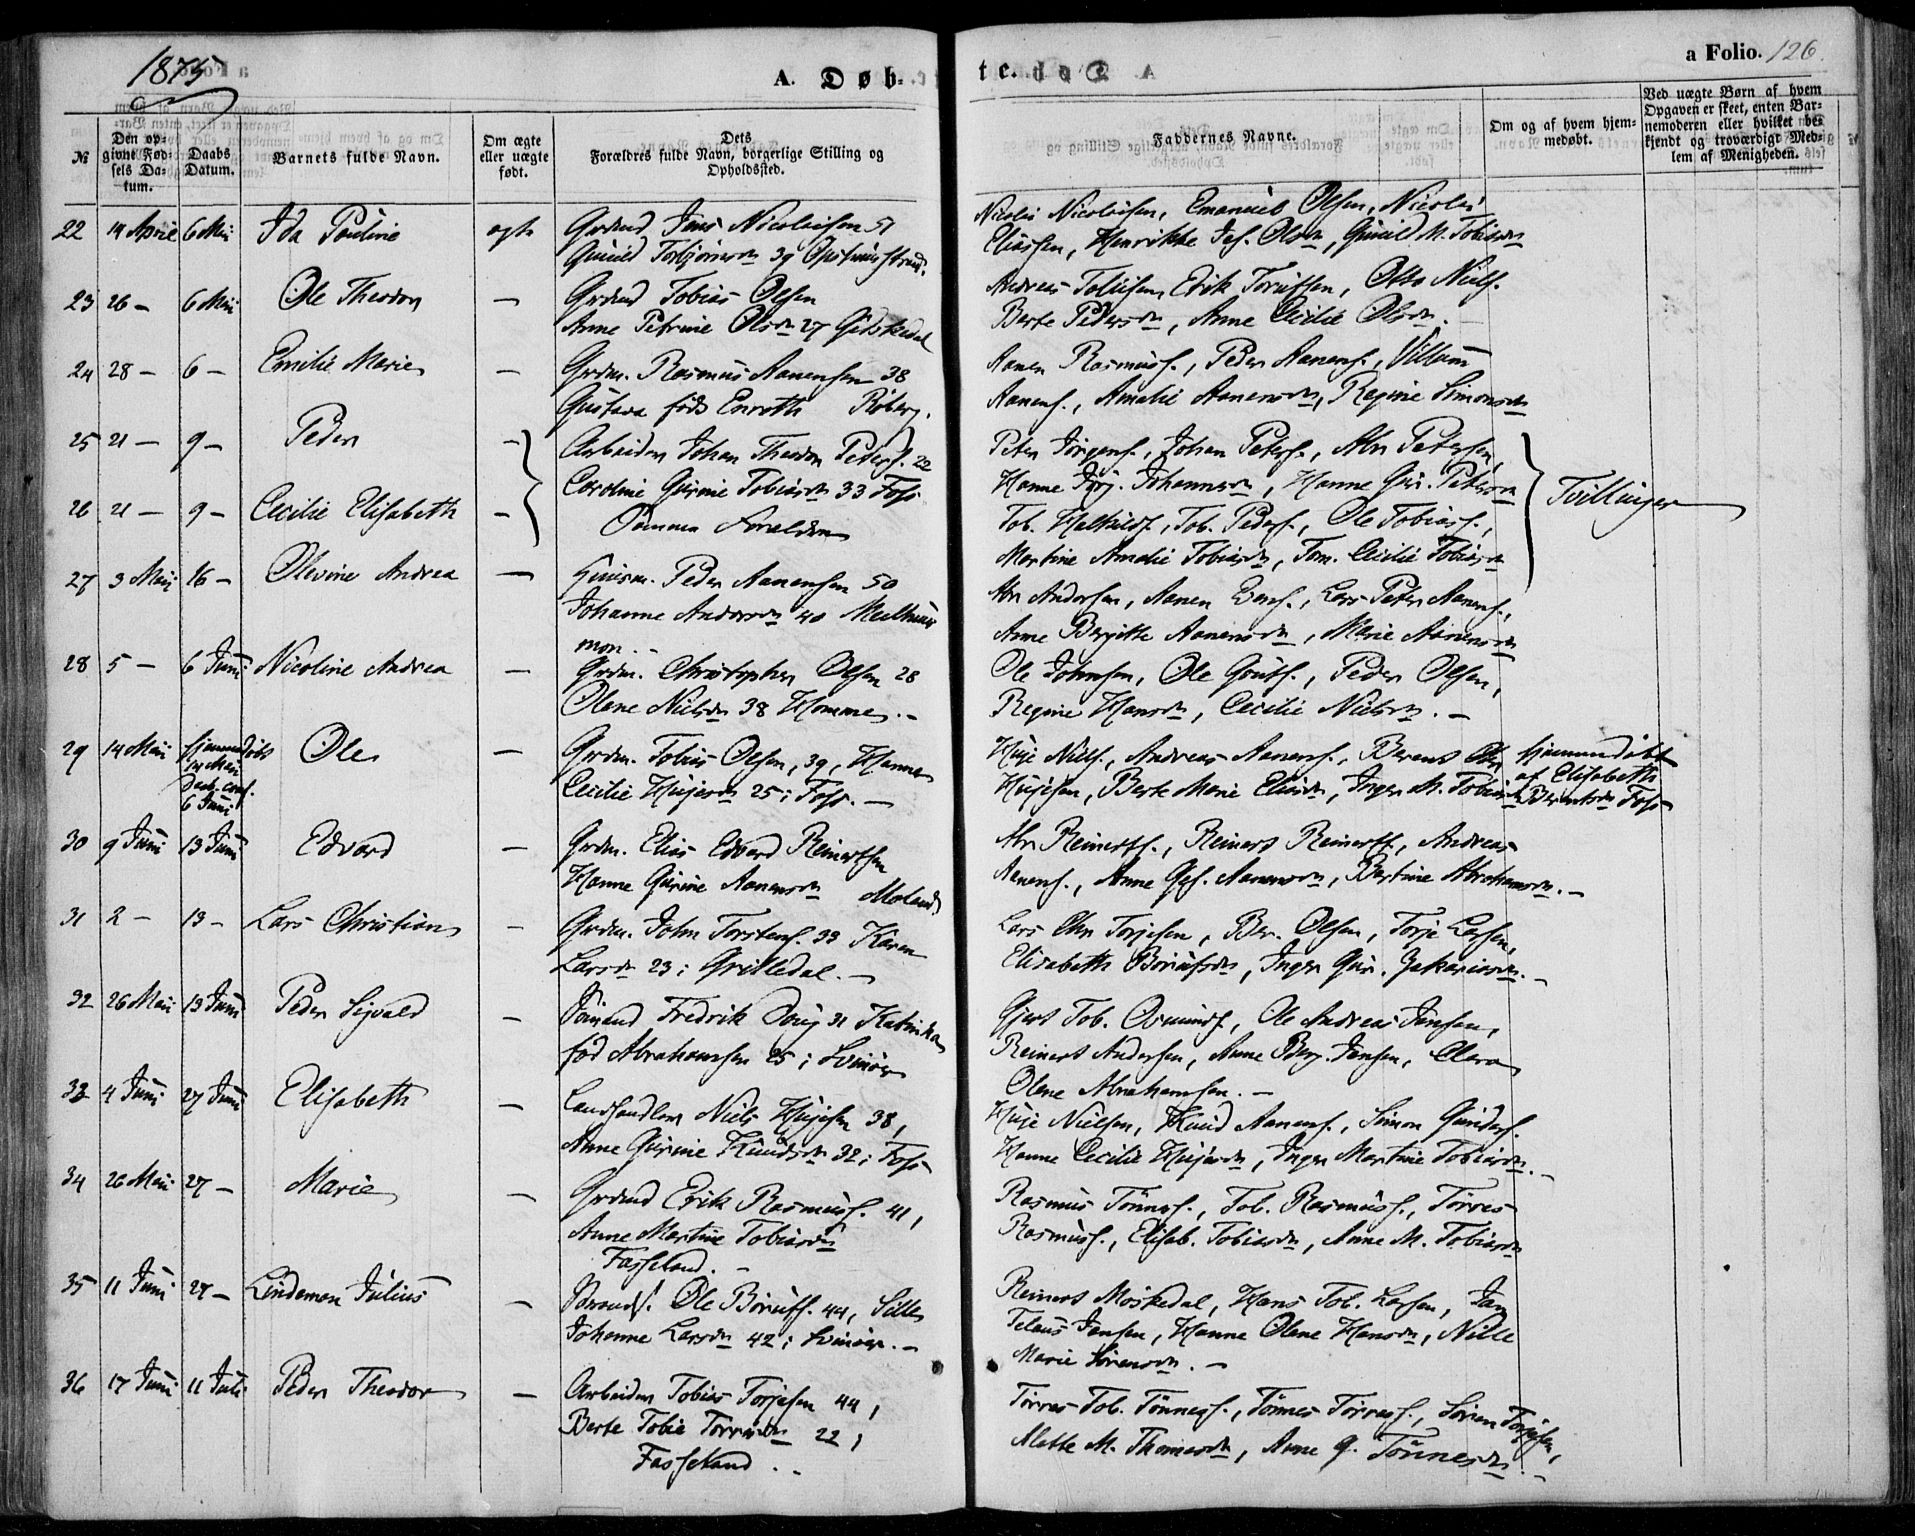 1875
A. Døb-
te.
a Folio. 126.
№
Den op-
givne Fød-
sels Da-
tum.
Daabs
Datum.
Barnets fulde Navn.
Om ægte
eller uægte
født.
Dets
Forældres fulde Navn, borgerlige Stilling og
Opholdssted.
Faddernes Navne.
Om og af hvem hjem-
medøbt.
Ved uægte Børn af hvem
Opgaven er skeet, enten Bar-
nemoderen eller hvilket be-
kjendt og troværdigt Med-
lem af Menigheden.
22 14 April 6 Mai Ida Pauline ægte Grdmd Jens Nicolaisen 51
Gunild Torbjørnsdr 39
Nicolai Nicolaisen, Emanuel Olsen, Nicolai
Eliassen, Henrikke Jos. Olsdr, Gunild M. Tobiasdr
23 26 - 6 Mai Ole Theodor - Grdmd Tobias Olsen
Anne Petrine Olsdr 27 Gidskedal
Andreas Tollisen, Erik Torkilsen, Otto Niels.
Berte Pedersdr, Anne Cecilie Olsdr. -
24 28 - 6 - Emilie Marie - Grdm. Rasmus Aanensen 38
Gustava født Enroth Röberg.
Aanen Rasmuss., Peder Aanens., Villum
Aanens., Amalie Aanensdr, Regine Simonsdr
25 21 - 9 - Peder - Arbeider Johan Theodor Peters. 22
Caroline Gurine Tobiasdr 33 Foss
Peter Jörgens., Johan Peters., Abr Petersen,
Hanne Jörg. Johannesdr, Hanne Gur. Petersdr
26 21 - 9 - Cecilie Elisabeth - Samme Forældre
Tob. Peders., Ole Tobiass.,
Martine Amalie Tobiasdr, Tom. Cecilie Tobiasdr
Tvillinger
27 3 Mai 16 - Olevine Andrea - Huusm. Peder Aanensen 50
Johanne Andersdr 40
mon. -
Abr Andersen, Aanen Evens., Lars Peter Aanens.,
Anne Bergitte Aanensdr, Marie Aanensdr
28 5 - 6 Juni Nicoline Andrea - Grdm. Christopher Olsen 28
Olene Nielsdr 38 Homme. -
Ole Johnsen, Ole Gouts., Peder Olsen,
Regine Hansdr, Cecilie Nielsdr. -
29 14 Mai hjemmedöbt
14 Mai
Daab conf.
6 Juni
Ole - Grdm. Tobias Olsen, 39, Hanne
Cecilie Huijesdr 25 i Foss. -
Huje Niels., Andreas Aanens., Berent Chr
Huijesen, Berte Marie Eliasdr, Inger M. Tobiasdr
hjemmedöbt
af Elisabeth
Berentsdr Foss
30 9 Juni 13 Juni Edvard - Grdm. Elias Edvard Reinertsen
Hanne Gurine Aanensdr Moland
Abr Reinerts., Reinert Reinerts., Andreas
Aanens., Anne Aanensdr, Bertine Abrahamsdr. -
31 2 - 13 - Lars Christian - Grdm. John Torstens. 33 Karen
Larsdr 23 i Grislledal. -
Lars Chr Torjesen, Ber. Olsen, Torje Larsen,
Elisabeth Borüfsdr, Inger Gur. Zakariasdr. -
32 26 Mai 13 Juni Peder Sigvald - Sömand Fredrik 31 Katrika
fød Abrahamsen 25 i Svinör
Gjert Tob. Osmunds., Ole Andreas Jensen,
Reinert Andersen, Anne Berg. Jensen, Clara
Olene Abrahamsen. -
33 4 Juni 27 Juni Elisabeth - Landhandler Niels Huijesen 38,
Anne Gurine Knudsdr 32 i Foss
Huje Nielsen, Knud Aanens., Simon Gunders.
Hanne Cecilie Huijesdr, Inger Martine Tobiasdr. -
34 26 Mai 27 - Marie - Grdmd Erik Rasmuss. 41,
Anne Martine Tobiasdr
Fasseland. -
Rasmus Tönness., Tob. Rasmuss., Torres
Rasmuss., Elisab. Tobiasdr, Anne M. Tobiasdr
35 11 Juni 27 - Lindeman Julius - Ole Börufs. 44, Sille
Johanne Larsdr 42 i Svinör. -
Reinert Möskedal, Hans Tob. Larsen, Jan
Telaus Jensen, Hanne Olene Hansdr, Nille
Marie Sörensdr. -
36 17 Juni 11 Juli Peder Theodor - Arbeider Tobias Torjesen 44,
Berte Tobie Torresdr 22,
Fasseland. -
Törres Tob. Tönness., Tönnes Törress., Sören Torjesen,
Alette M. Thomasdr, Anne G. Tönnesdr. -